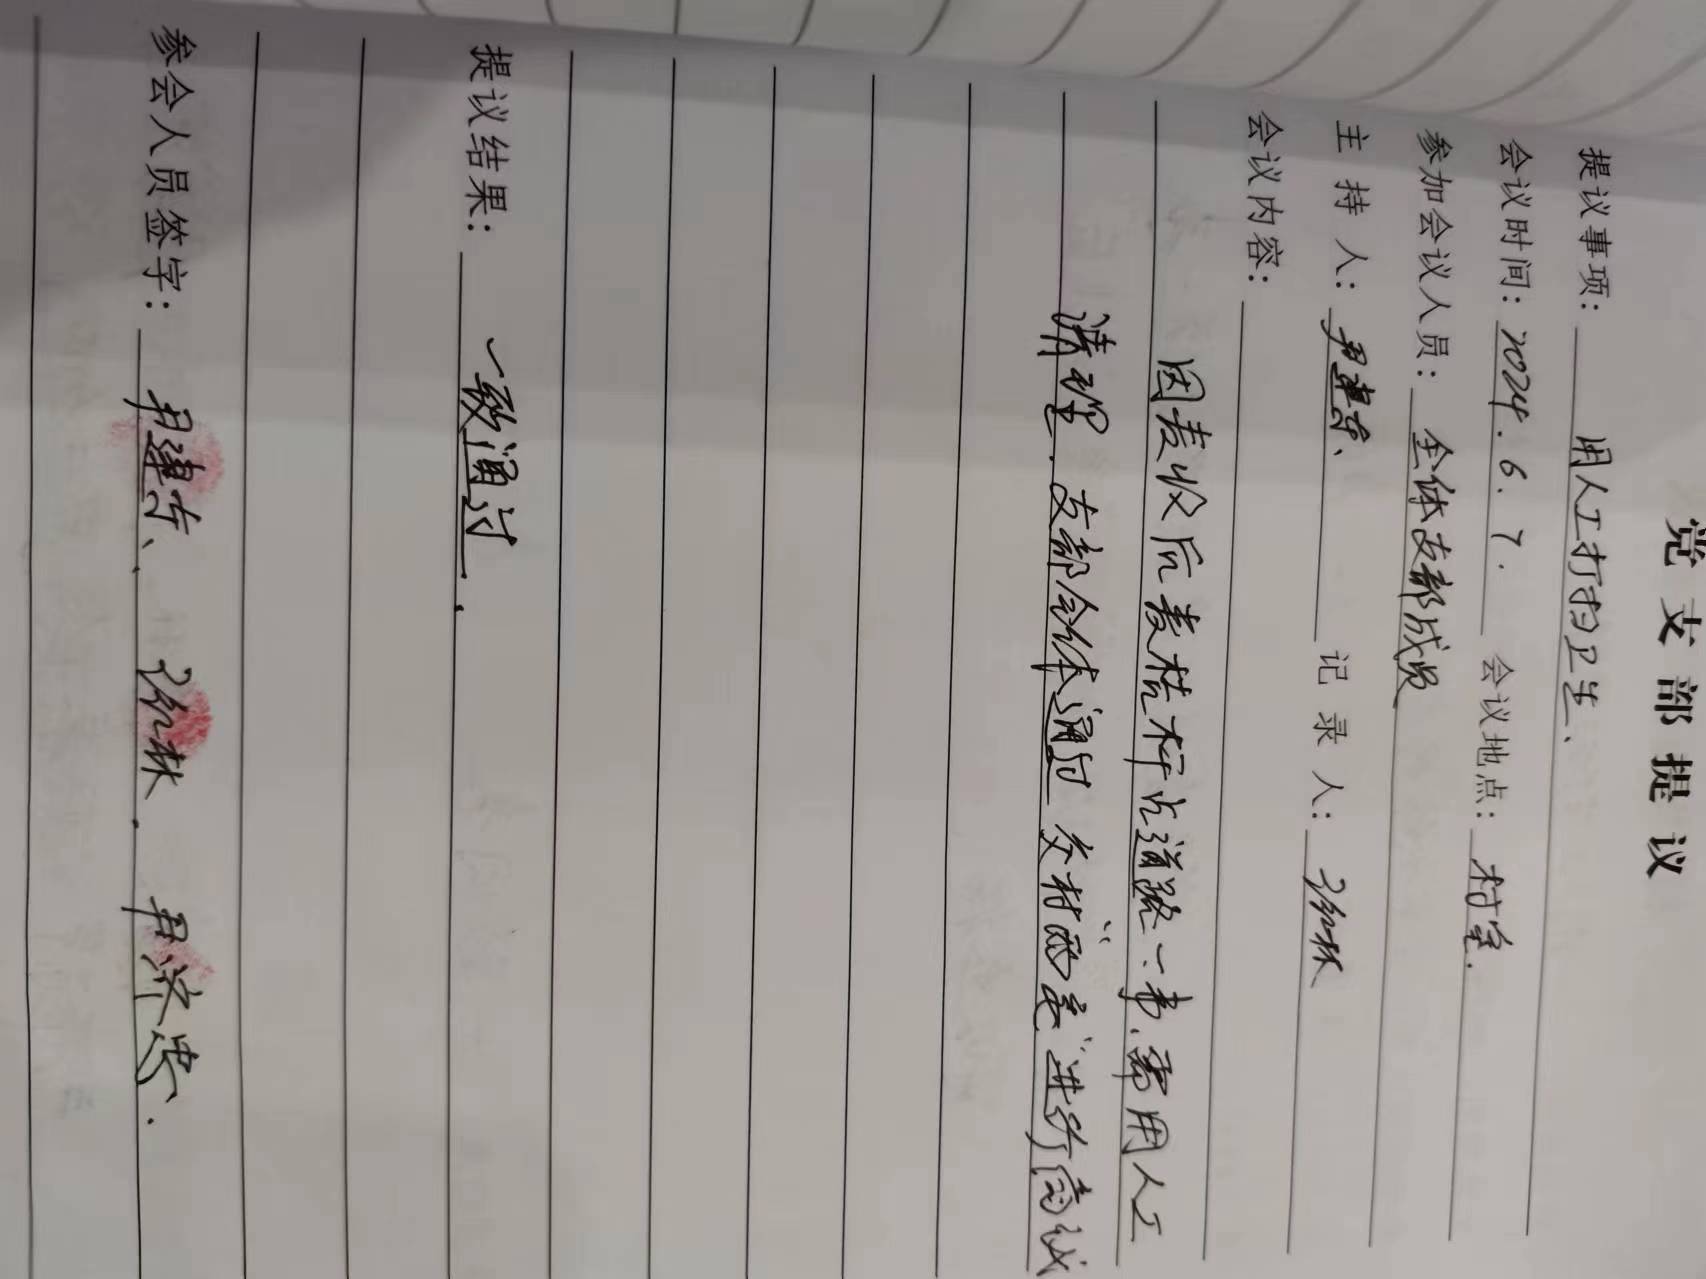 党支部提议
提议事项： 用人工打扫卫生、
会议时间：2024.6.7. 会议地点：村室.
参加会议人员：全体支部成员
主持人：尹建东、 记录人：张林
会议内容：
因麦收后麦秸秆占道路一事、需用人工
清理. 支部全体通过 交村“两委”进行商议
提议结果： 一致通过.
参会人员签字： 尹建东、 张林. 尹济忠.